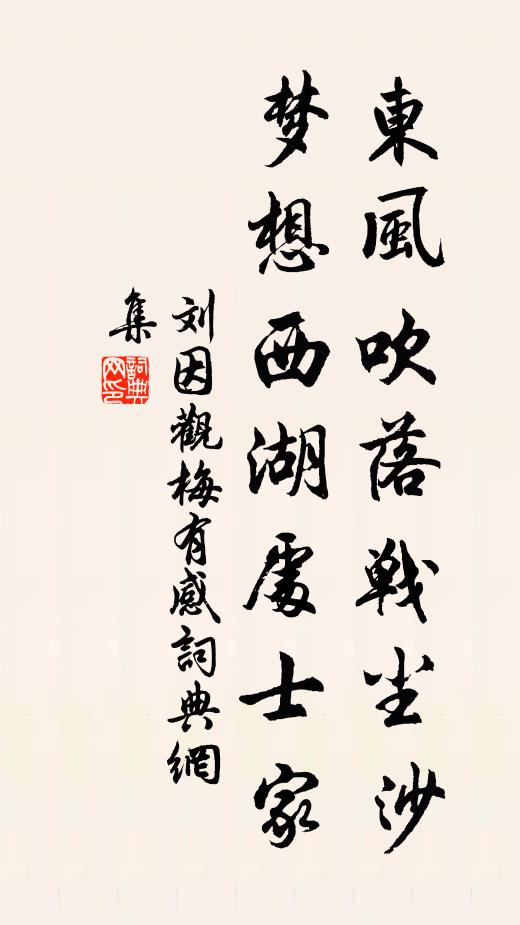 東風吹落戦尘沙
梦想西湖處士家
刘因觀梅有感詞典網
集
詞典网印